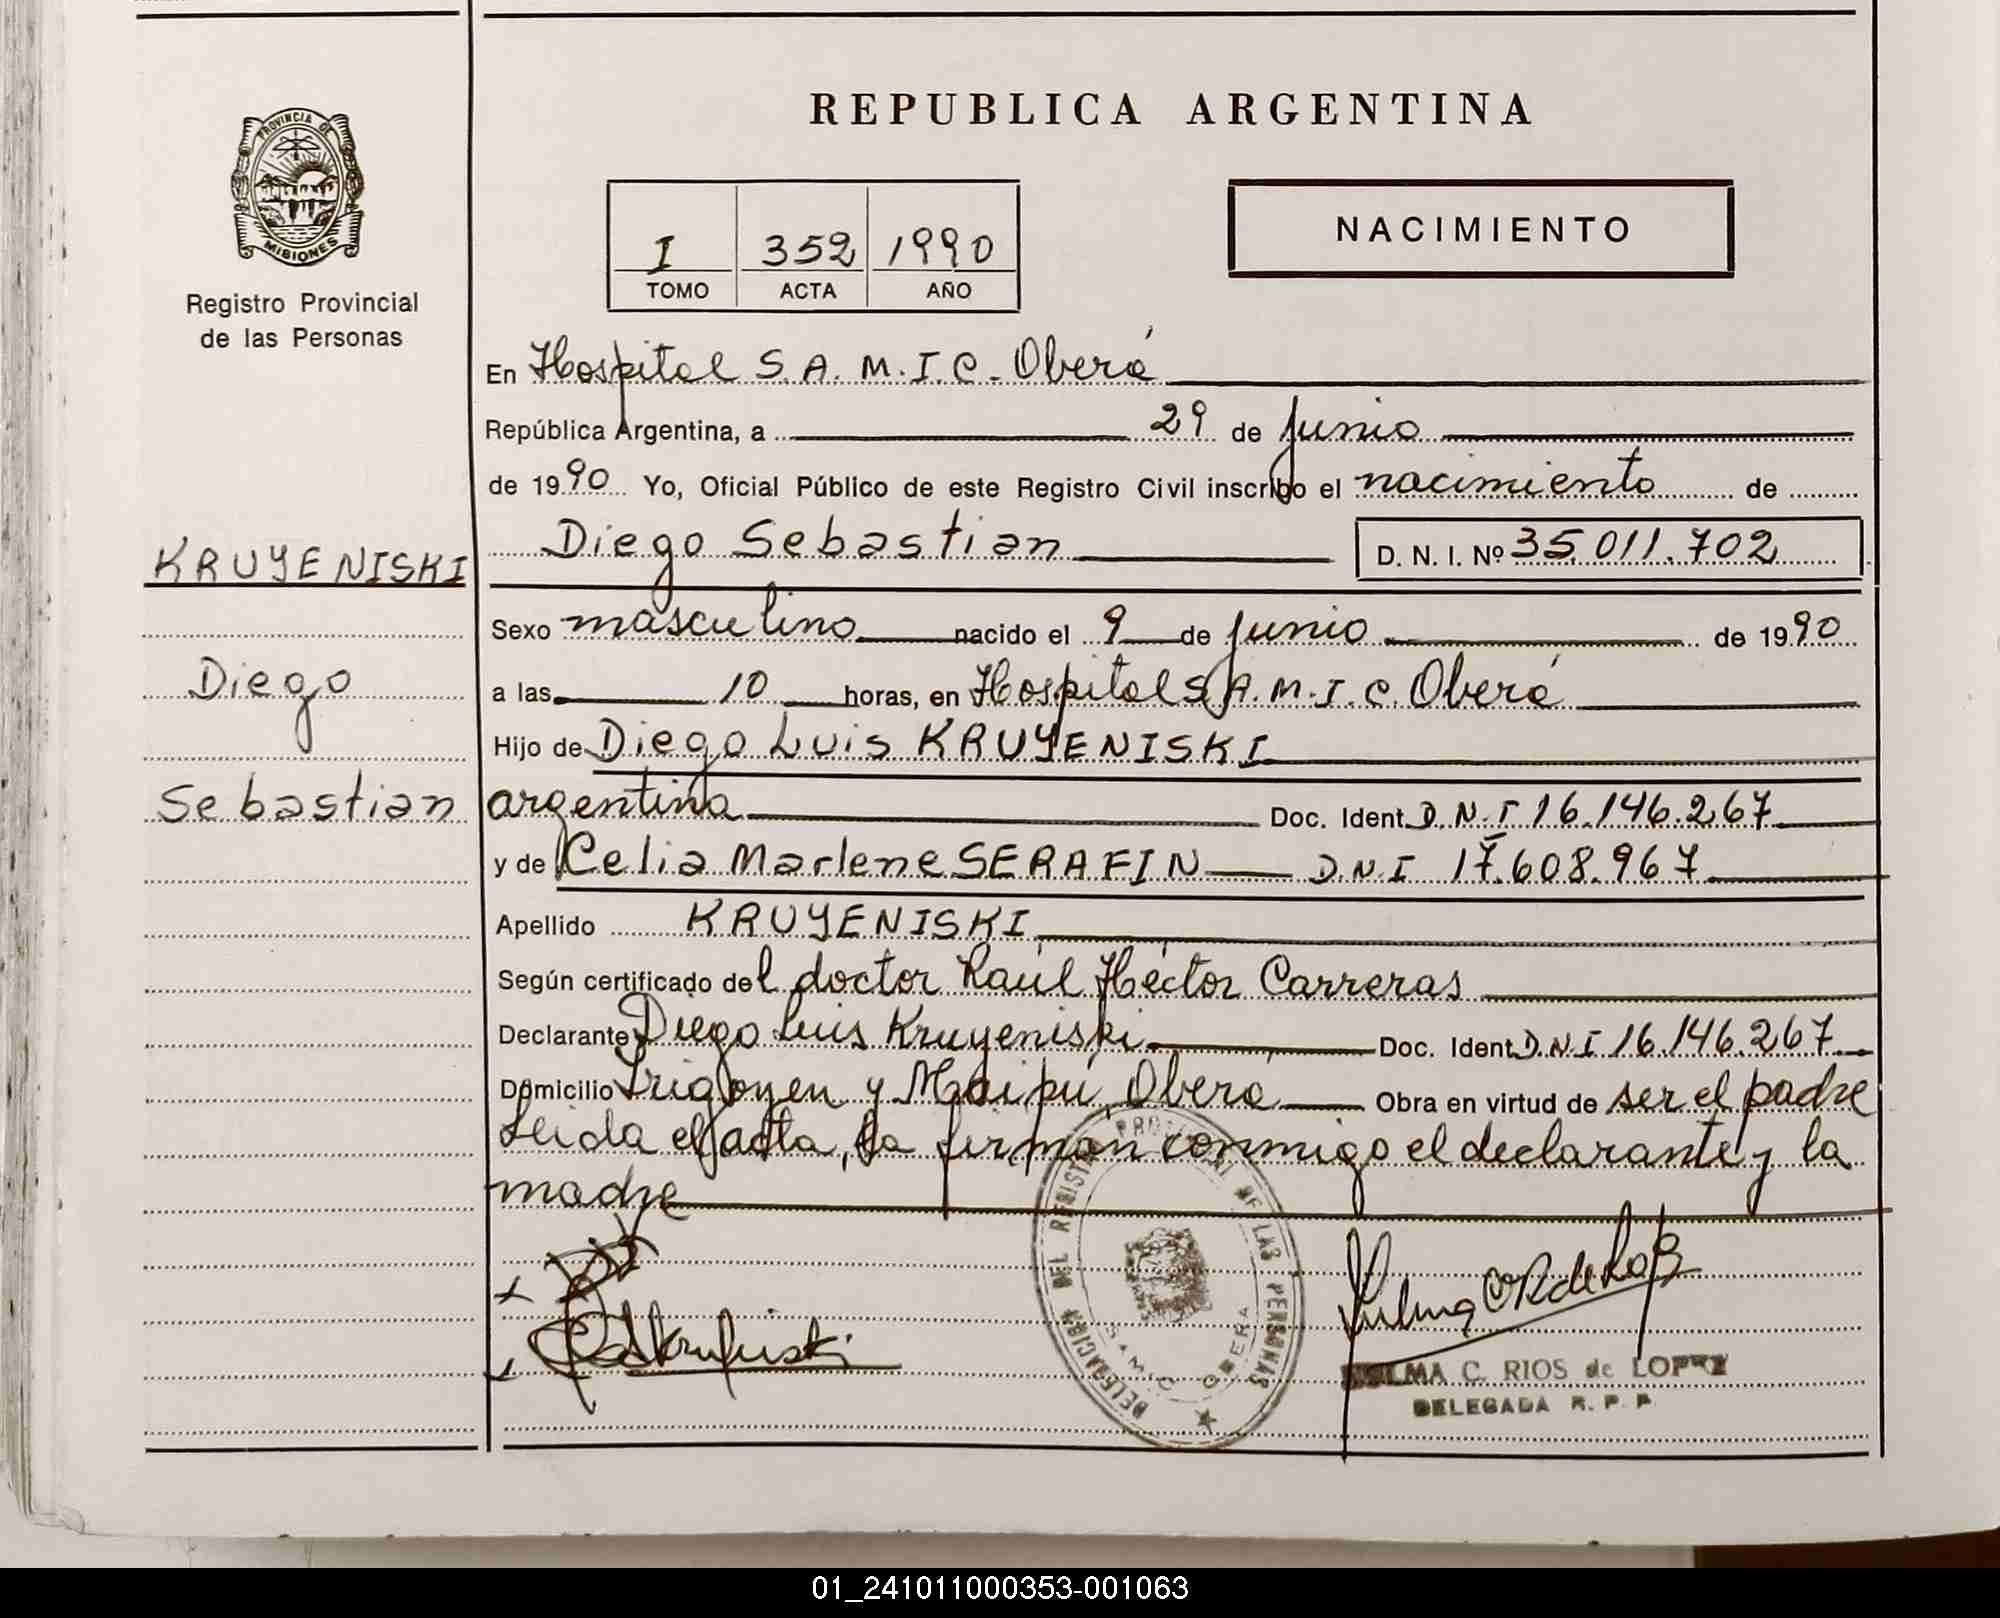 REPUBLICA ARGENTINA
PROVINCIA DE
MISIONES
Registro Provincial
de las Personas
NACIMIENTO
I 352 1990
TOMO ACTA AÑO
En Hospital S.A.M.I.C. Oberá
República Argentina, a 29 de junio
de 1990 Yo, Oficial Público de este Registro Civil inscribo el nacimiento de
Diego Sebastian D. N. I. Nº 35.011.702
KRUYENISKI
Diego
Sebastian
Sexo masculino nacido el 9 de junio de 1990
a las 10 horas, en Hospital S.A.M.I.C. Oberá
Hijo de Diego Luis KRUYENISKI
argentina Doc. Ident. D.N.I 16.146.267
y de Celia Marlene SERAFIN D.N.I 17.608.967
Apellido KRUYENISKI
Según certificado del doctor Raúl Héctor Carreras
Declarante Diego Luis Kruyeniski Doc. Ident. D.N.I 16.146.267
Domicilio Irigoyen y Maipú, Oberá Obra en virtud de ser el padre
Leida el acta, la firman conmigo el declarante y la
madre
DELEGACION DEL REGISTRO PROVINCIAL DE LAS PERSONAS
SAMIC OBERA
C. RIOS de LOPEZ
DELEGADA R. P. P.
01_241011000353-001063